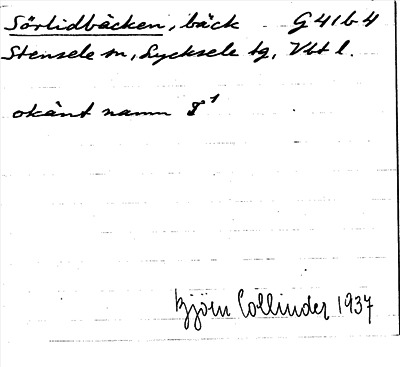 Sörlidbäcken, bäck G41b4
Stensele sn, Lycksele tg, Vbt l.
okänt namn
Björn Collinder 1937